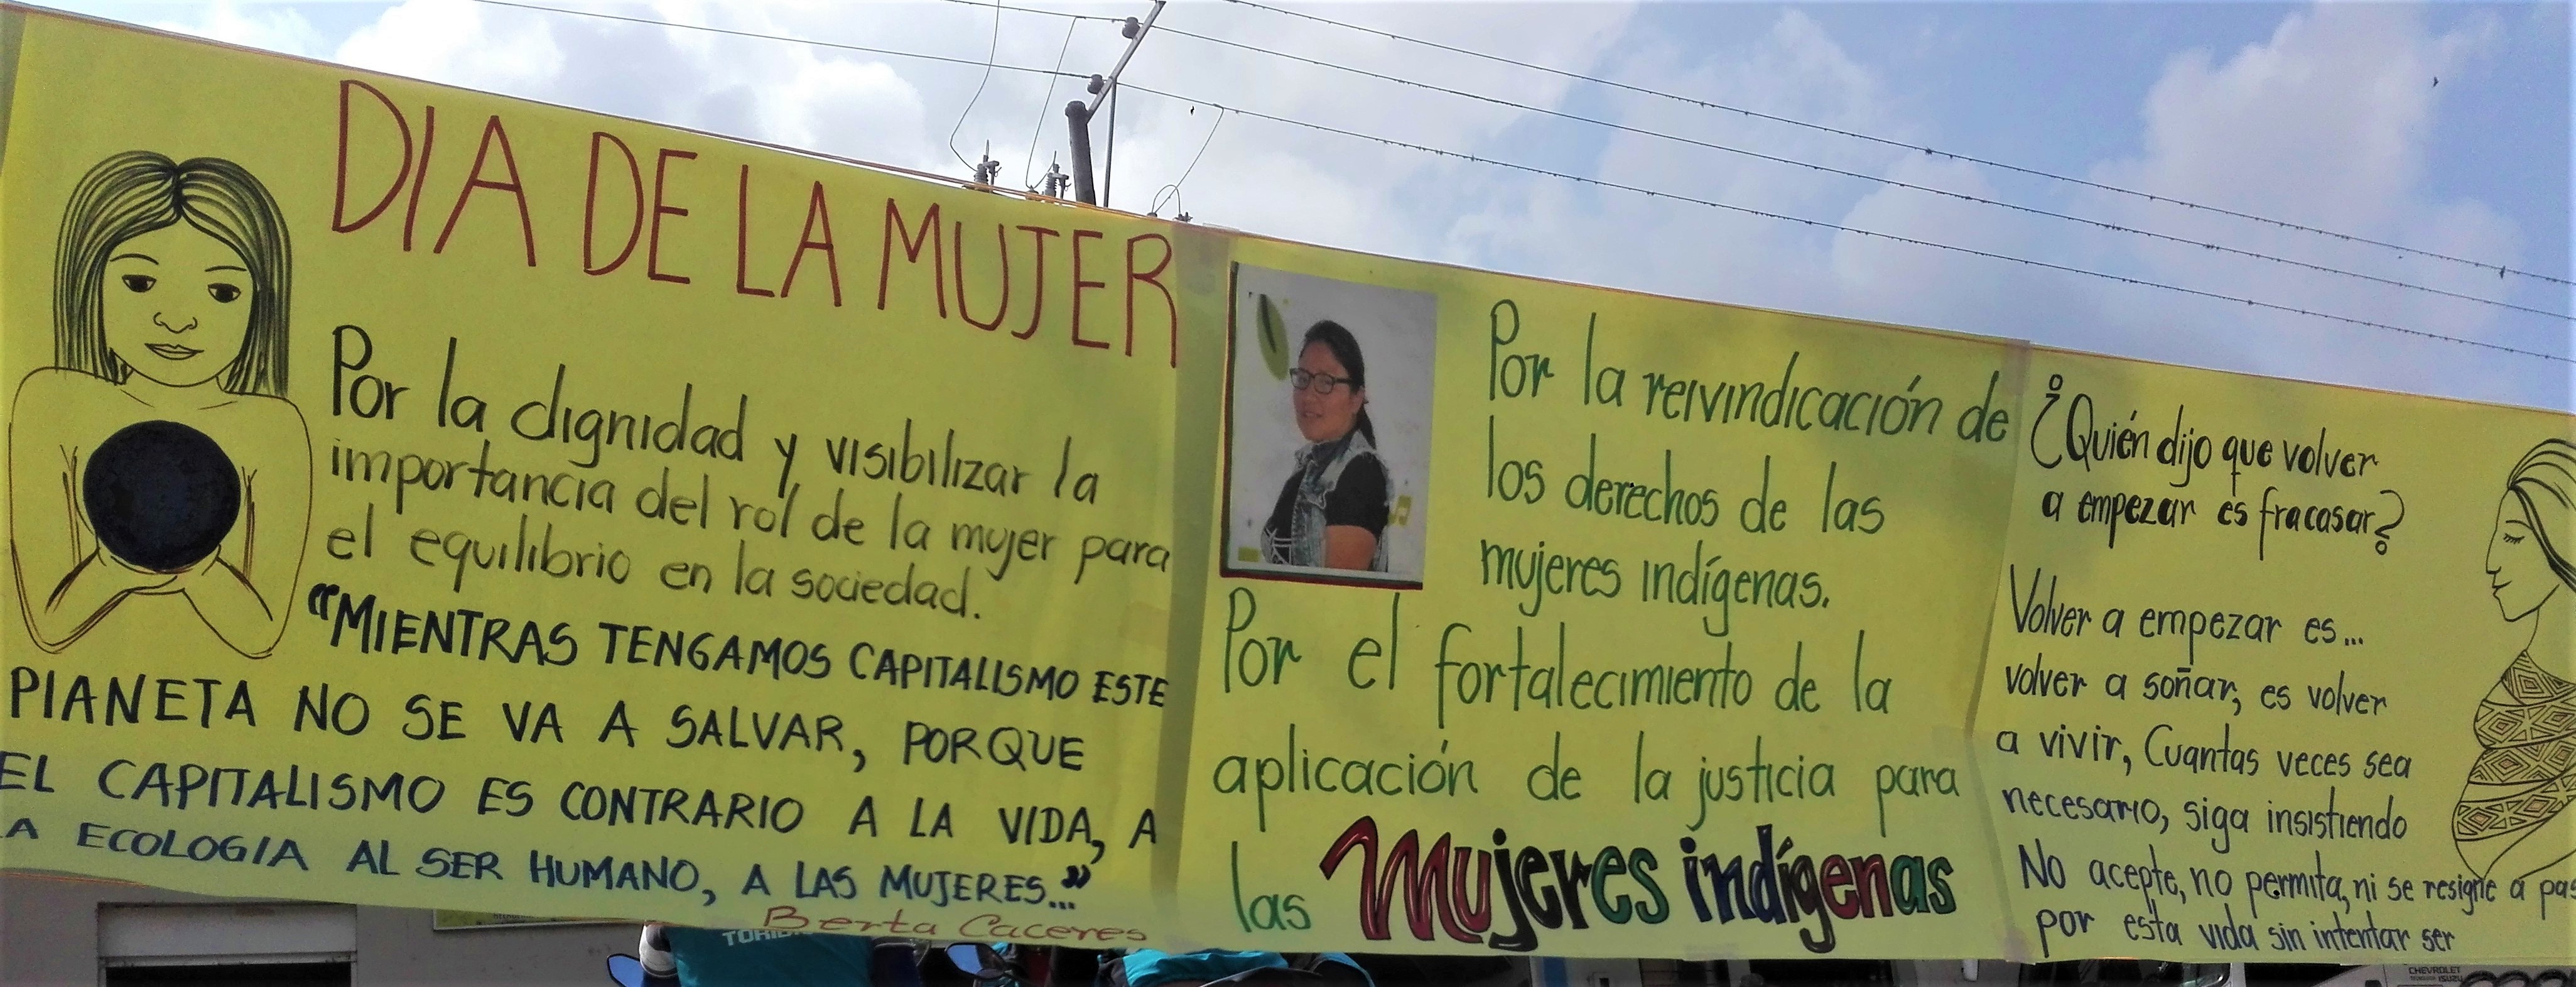 DIA DE LA MUJER
Por la dignidad y visibilizar la
importancia del rol de la mujer para
el equilibrio en la sociedad.
"MIENTRAS TENGAMOS CAPITALISMO ESTE
PLANETA NO SE VA A SALVAR, PORQUE
EL CAPITALISMO ES CONTRARIO A LA VIDA, A
LA ECOLOGIA AL SER HUMANO, A LAS MUJERES..."
Berta Caceres
Por la reivindicación de
los derechos de las
mujeres indígenas.
Por el fortalecimiento de la
aplicación de la justicia para
las Mujeres indígenas
¿Quién dijo que volver
a empezar es fracasar?
Volver a empezar es...
volver a soñar, es volver
a vivir, Cuantas veces sea
necesario, siga insistiendo
No acepte, no permita, ni se resigne a pas
por esta vida sin intentar ser
CHEVROLET
ISUZU